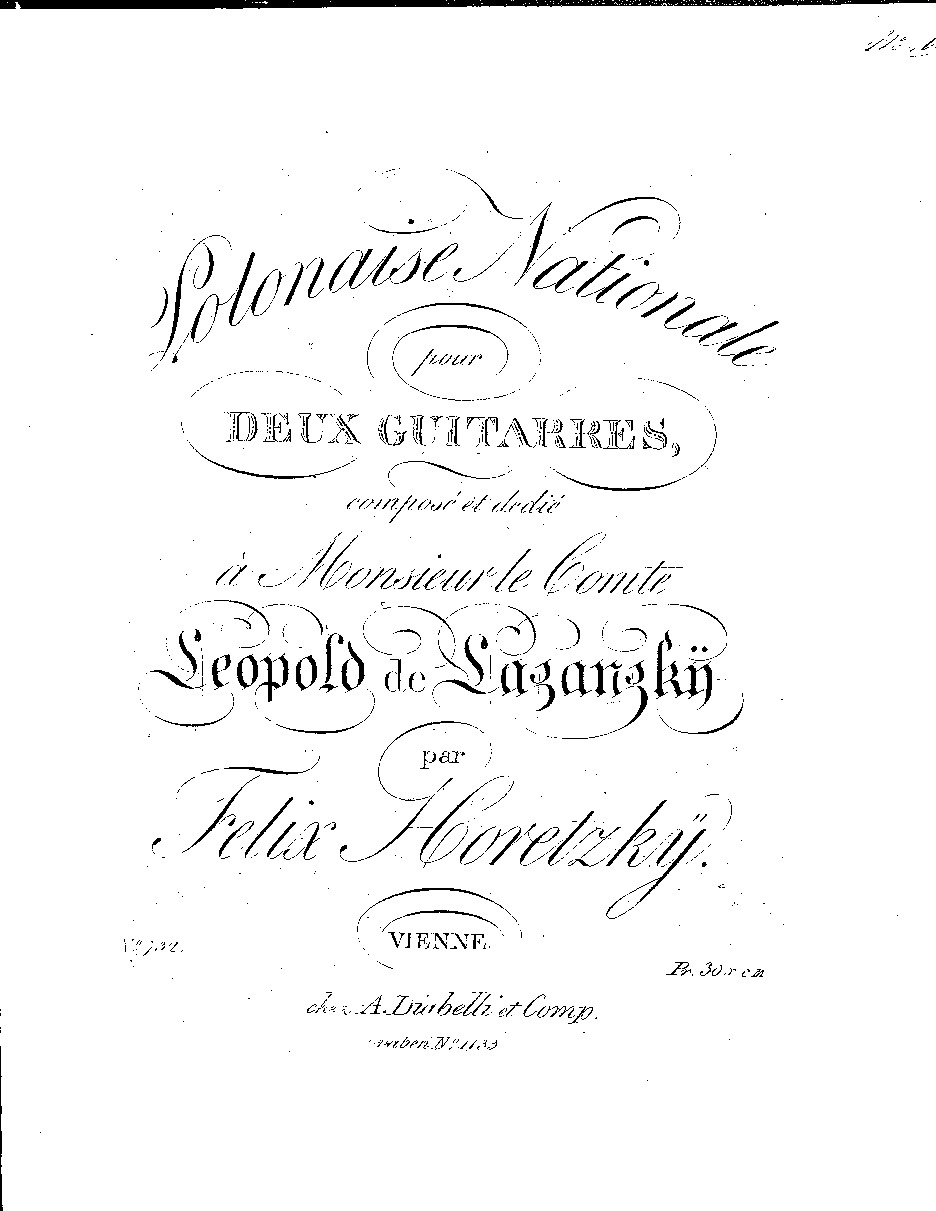 Polonaise Nationale
pour
DEUX GUITARRES,
composé et dedié
à Monsieur le Comte
Leopold de Lazanzkÿ
par
Felix Horetzkÿ.
VIENNE
Pr. 30 x c m
chez A. Diabelli et Comp.
Graben No. 1133